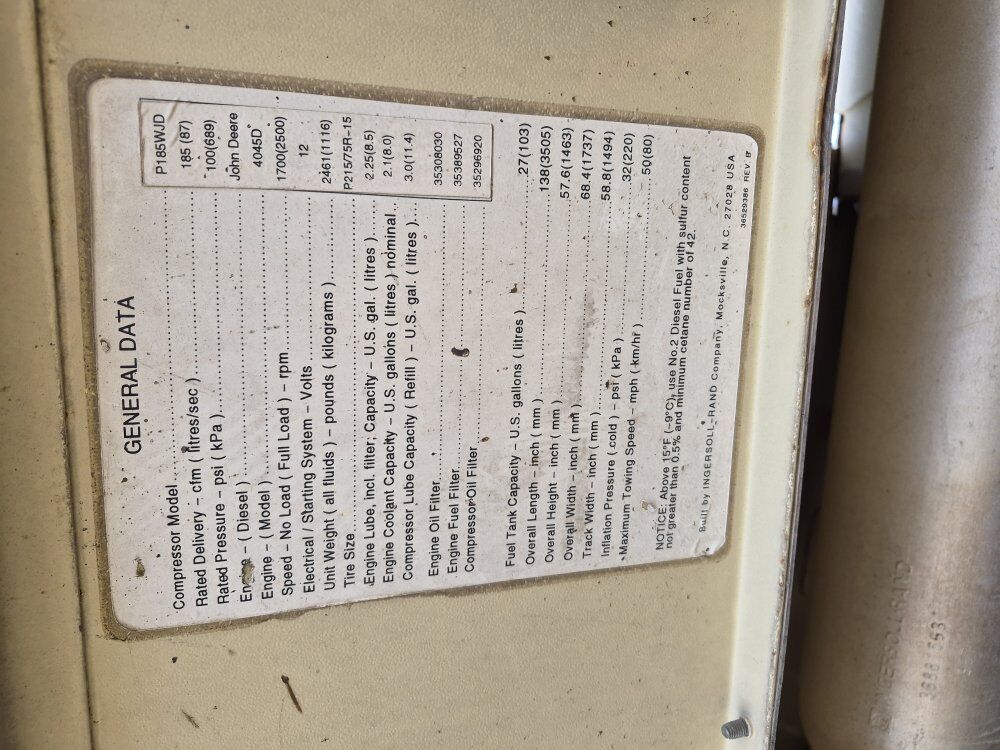 GENERAL DATA
Compressor Model P185WJD
Rated Delivery – cfm ( litres/sec ) 185 (87)
Rated Pressure – psi ( kPa ) 100(689)
Engine – ( Diesel ) John Deere
Engine – ( Model ) 4045D
Speed – No Load ( Full Load ) – rpm 1700(2500)
Electrical / Starting System – Volts 12
Unit Weight ( all fluids ) – pounds ( kilograms ) 2461(1116)
Tire Size P215/75R–15
Engine Lube, Incl. filter; Capacity – U.S. gal. ( litres ) 2.25(8.5)
Engine Coolant Capacity – U.S. gallons ( litres ) nominal 2.1(8.0)
Compressor Lube Capacity ( Refill ) – U.S. gal. ( litres ) 3.0(11.4)
Engine Oil Filter 35308030
Engine Fuel Filter 35389527
Compressor Oil Filter 35296920
Fuel Tank Capacity – U.S. gallons ( litres ) 27(103)
Overall Length – inch ( mm ) 138(3505)
Overall Height – inch ( mm ) 57.6(1463)
Overall Width – inch ( mm ) 68.4(1737)
Track Width – inch ( mm ) 58.8(1494)
Inflation Pressure ( cold ) – psi ( kPa ) 32(220)
Maximum Towing Speed – mph ( km/hr ) 50(80)
NOTICE: Above 15°F (–9°C), use No.2 Diesel Fuel with sulfur content
not greater than 0.5% and minimum cetane number of 42.
Built by INGERSOLL–RAND Company, Mocksville, N.C. 27028 USA
36529386 REV B
INGERSOLL-RAND